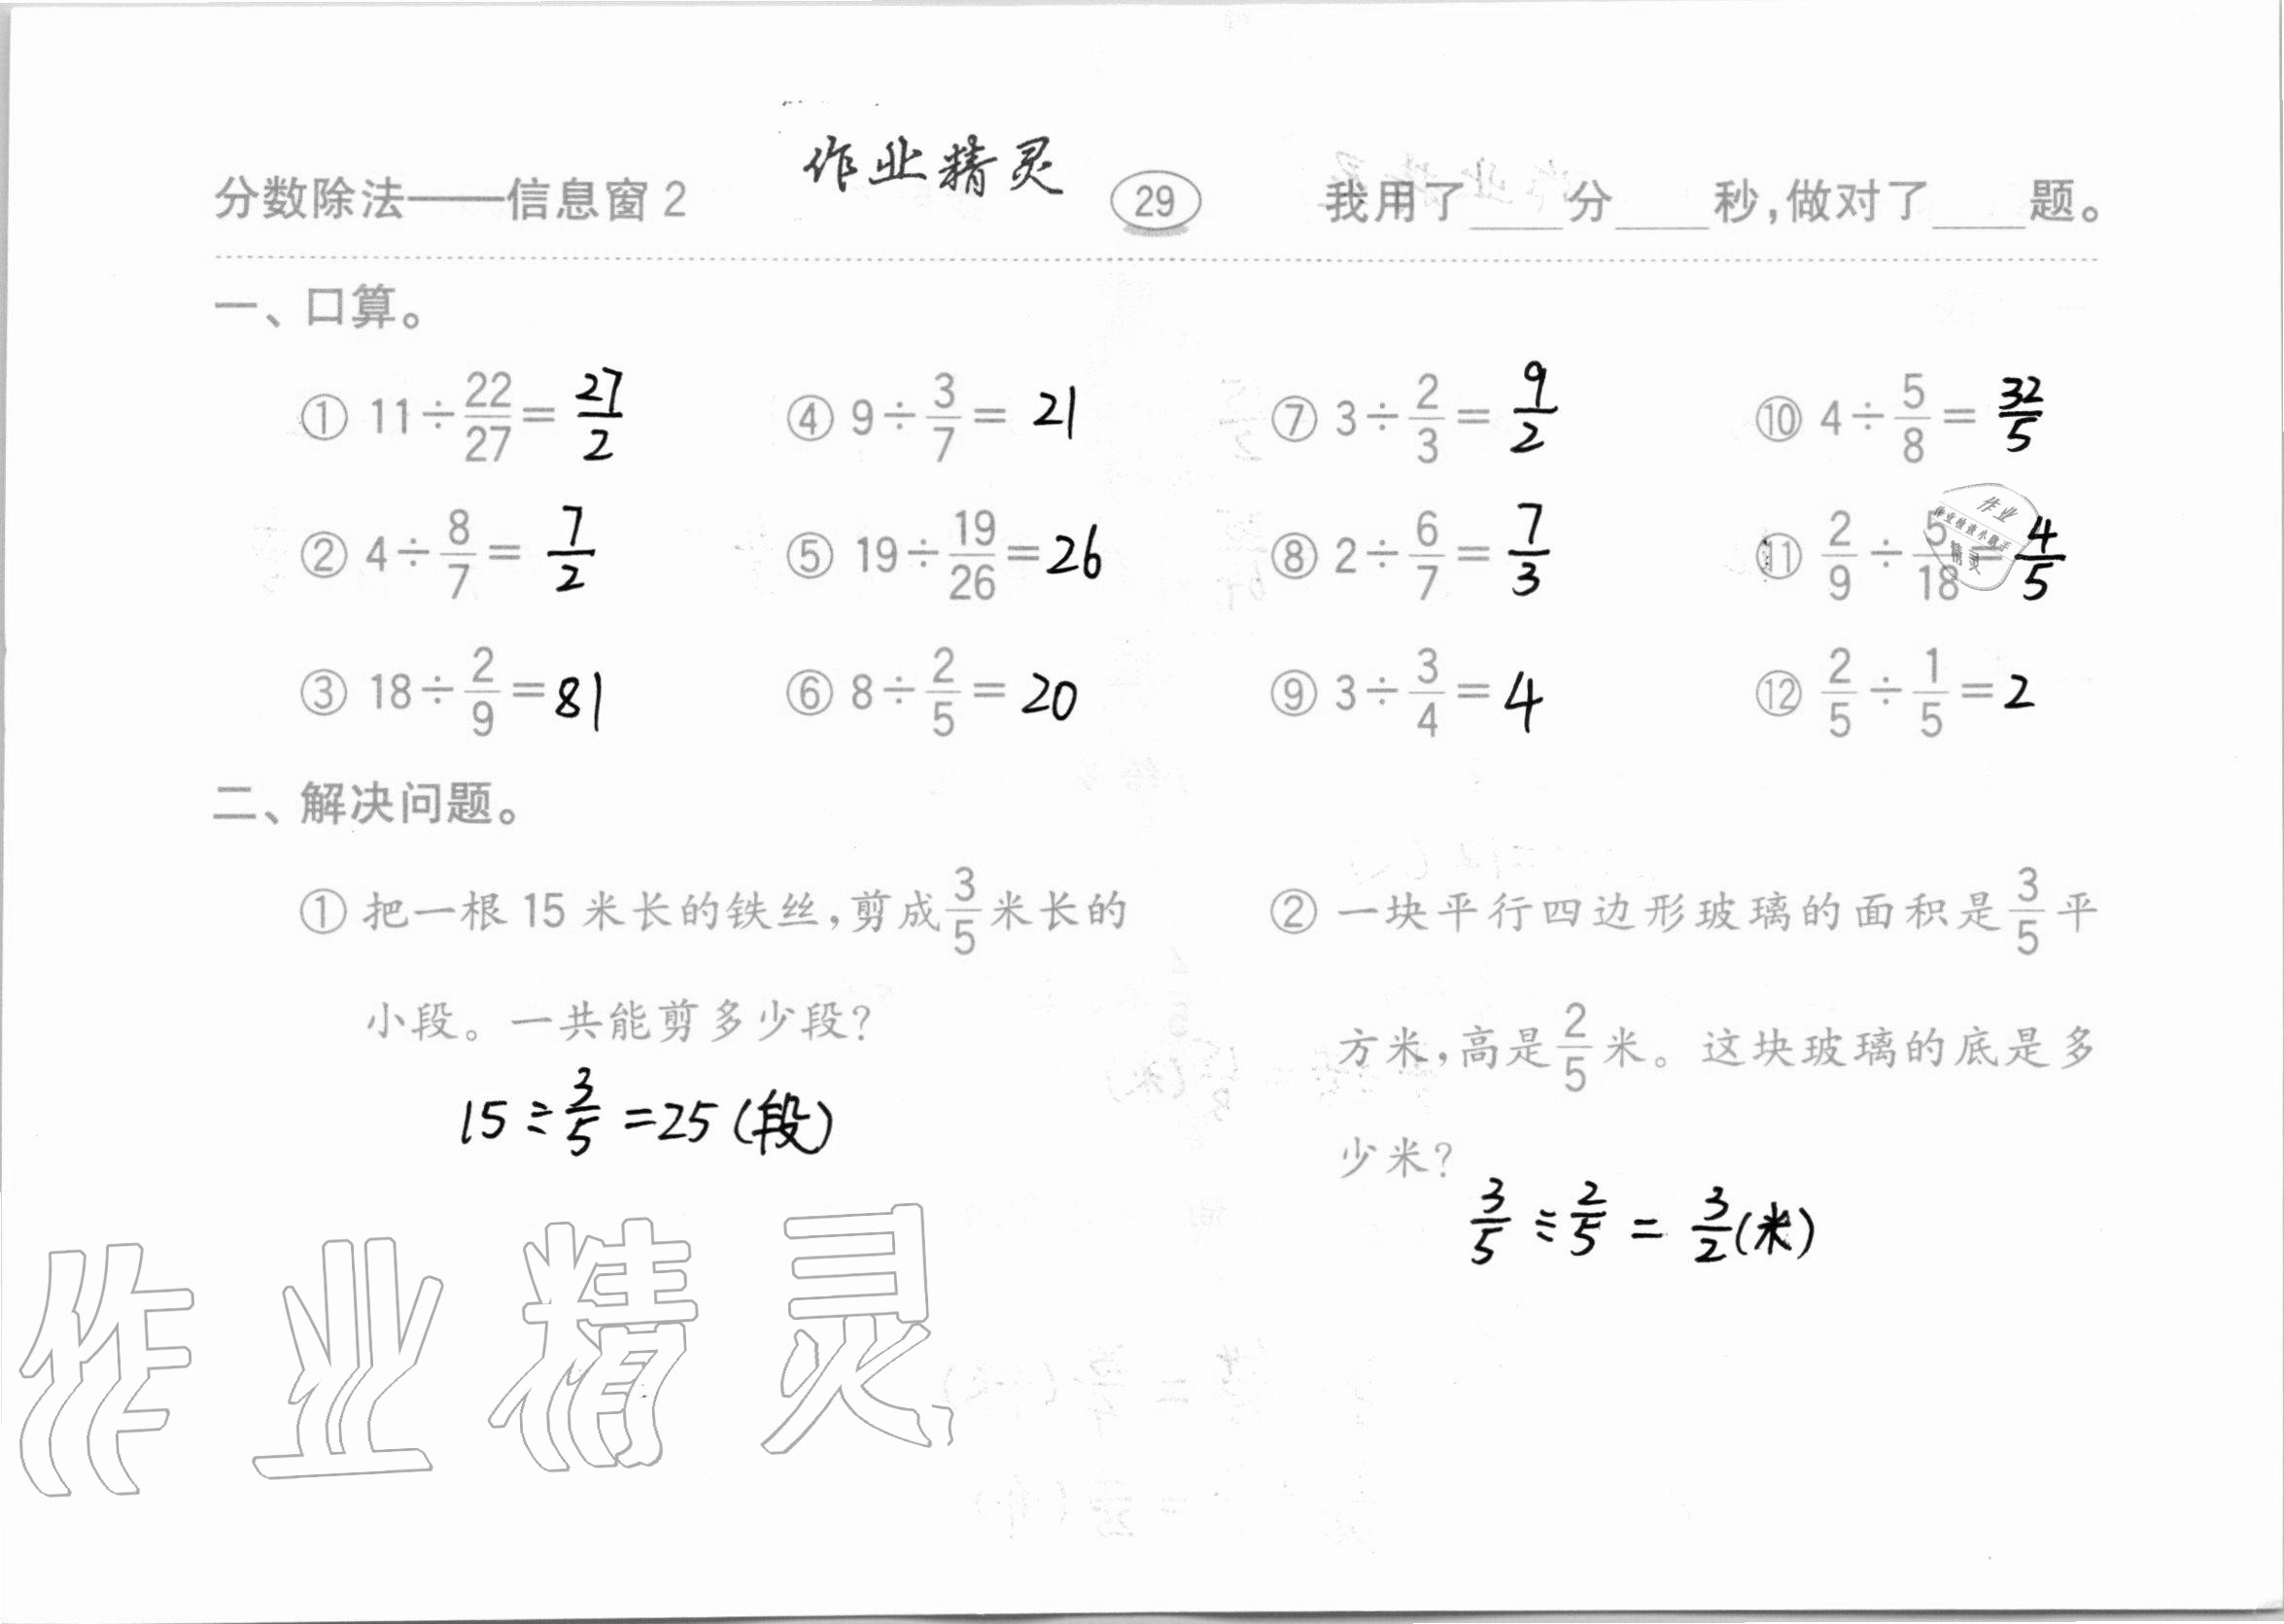 作业精灵
分数除法——信息窗2 29 我用了____分____秒,做对了____题。
一、口算。
① 11÷22/27=27/2 ④ 9÷3/7=21 ⑦ 3÷2/3=9/2 ⑩ 4÷5/8=32/5
② 4÷8/7=7/2 ⑤ 19÷19/26=26 ⑧ 2÷6/7=7/3 ⑪ 2/9÷5/18=4/5
③ 18÷2/9=81 ⑥ 8÷2/5=20 ⑨ 3÷3/4=4 ⑫ 2/5÷1/5=2
二、解决问题。
① 把一根15米长的铁丝,剪成3/5米长的
小段。一共能剪多少段?
15÷3/5=25(段)
② 一块平行四边形玻璃的面积是3/5平
方米,高是2/5米。这块玻璃的底是多
少米?
3/5÷2/5=3/2(米)
作业精灵
作业
精灵